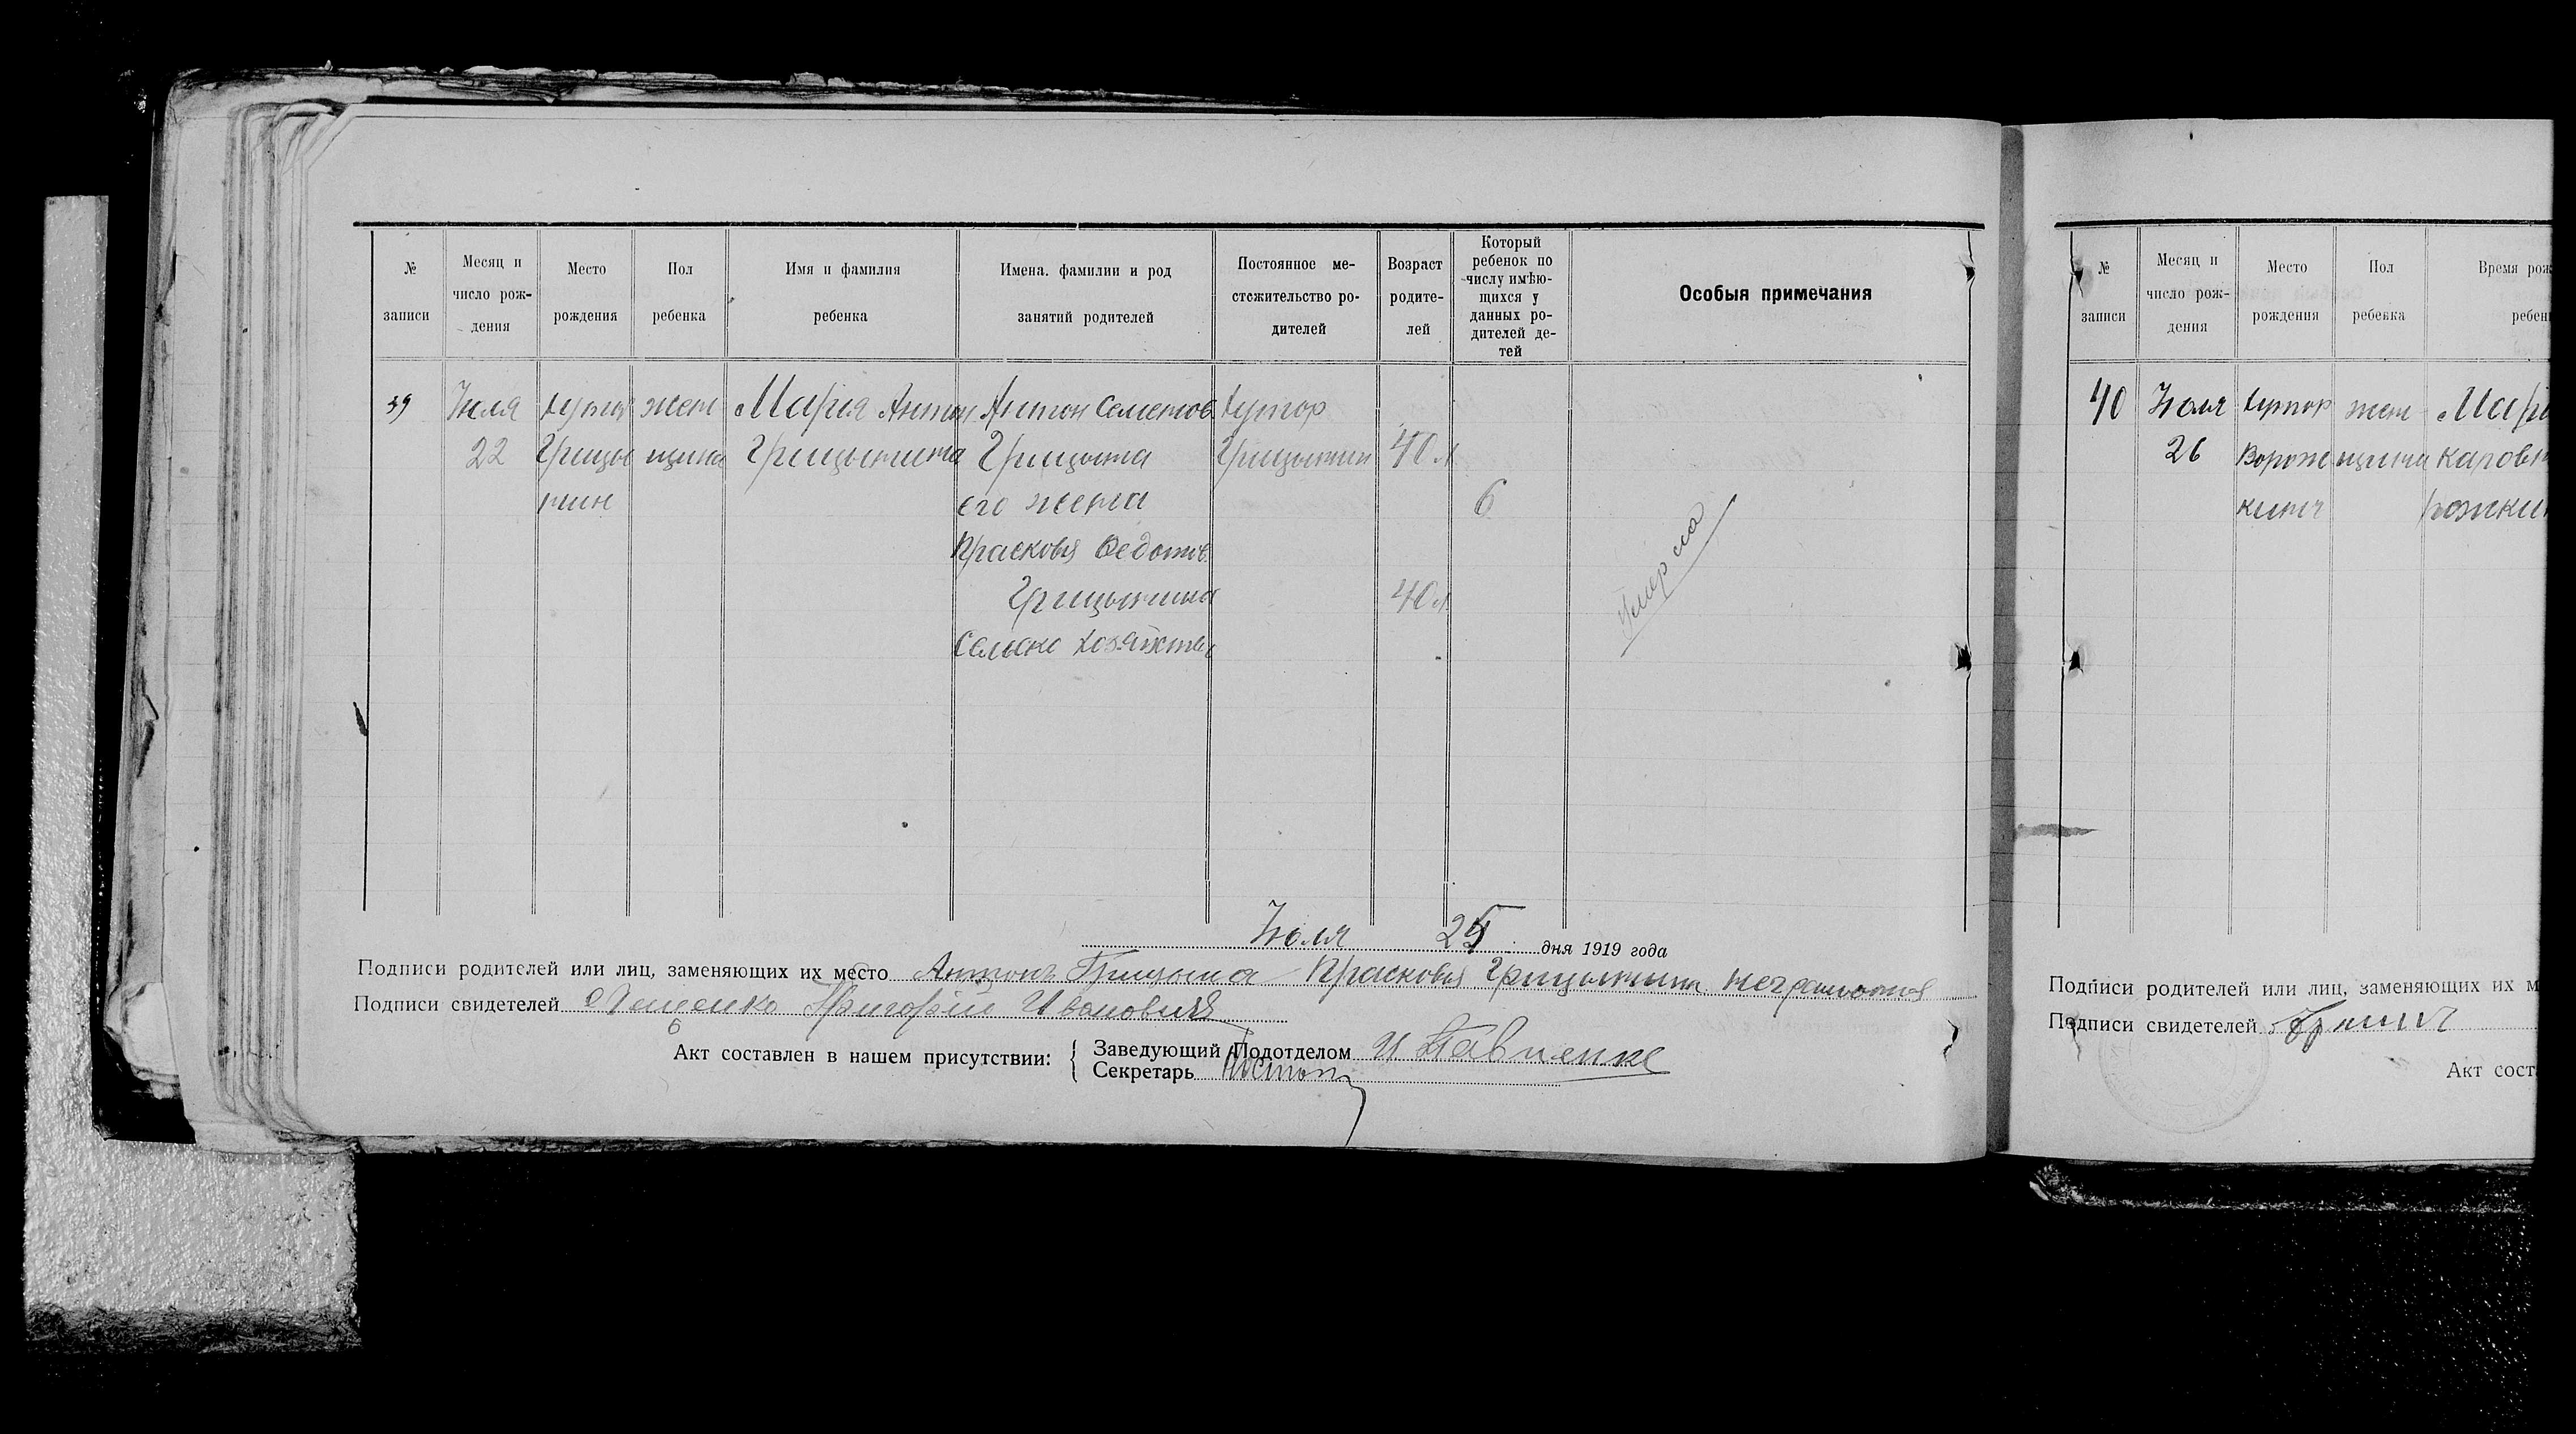 № записи
Месяц и число рождения
Место рождения
Пол ребенка
Имя и фамилия ребенка
Имена. фамилии и род занятий родителей
Постоянное местожительство родителей
Возраст родителей
Который ребенок по числу имѣющихся у данных родителей детей
Особыя примечания
39 Июля хутор жен Мария Антон Антон Семенов хутор
22 Грицы щина Грицынина Грицына Грицынин 40 л
нин его жена 6
Прасковья Федотов.
Грицынина 40 л
Сельско хозяйство
Умерла
Июля 25 дня 1919 года
Подписи родителей или лиц, заменяющих их место Антонъ Грицына Прасковья Грицынина неграмотная
Подписи свидетелей Григорій Ивановичъ
Акт составлен в нашем присутствии:
Заведующий Подотделом И Павленко
Секретарь
№ записи
Месяц и число рождения
Место рождения
Пол ребенка
Время рож
ребен
40 Июля хутор жен Мари
26 Ворож щина
кинъ рожки
Подписи родителей или лиц, заменяющих их м
Подписи свидетелей
Акт соста